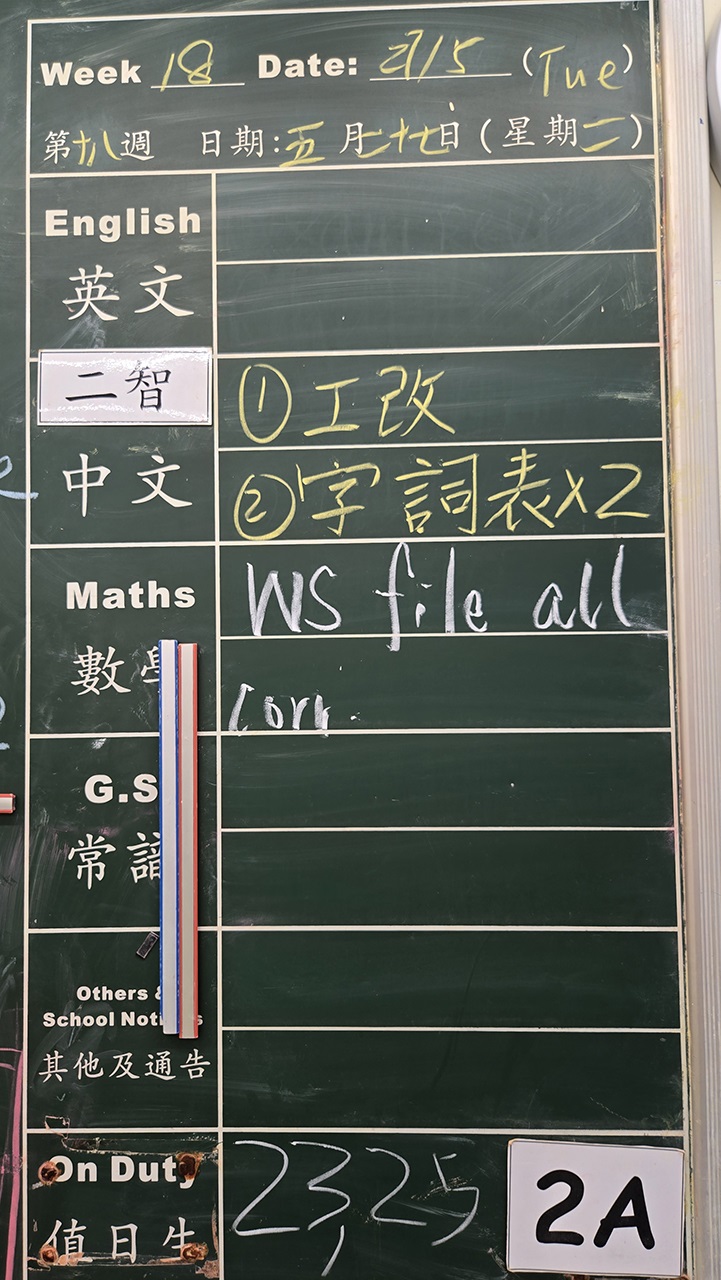 Week 18 Date: 27/5 (Tue)
第十八週 日期:五月二十七日(星期二)
English
英文
二智
① 工改
中文
② 字詞表x2
Maths
WS file all
數學
corr.
G.S
常識
Others &
School Notices
其他及通告
On Duty
23, 25
值日生
2A